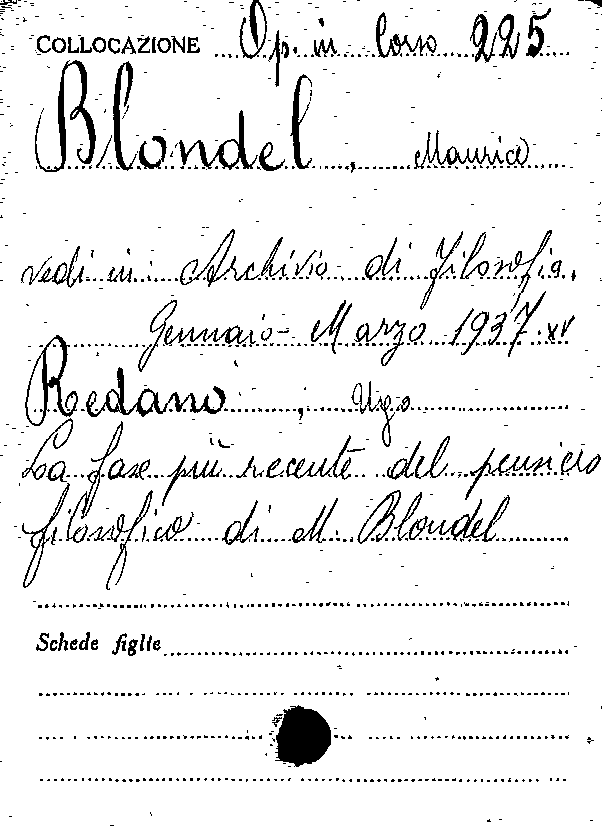 COLLOCAZIONE Op. in Corso 225
Blondel, Maurice
vedi in: Archivio di Filosofia.
Gennaio-Marzo 1937.XV
Redano, Ugo
La fase più recente del pensiero
filosofico di M. Blondel
Schede figlie